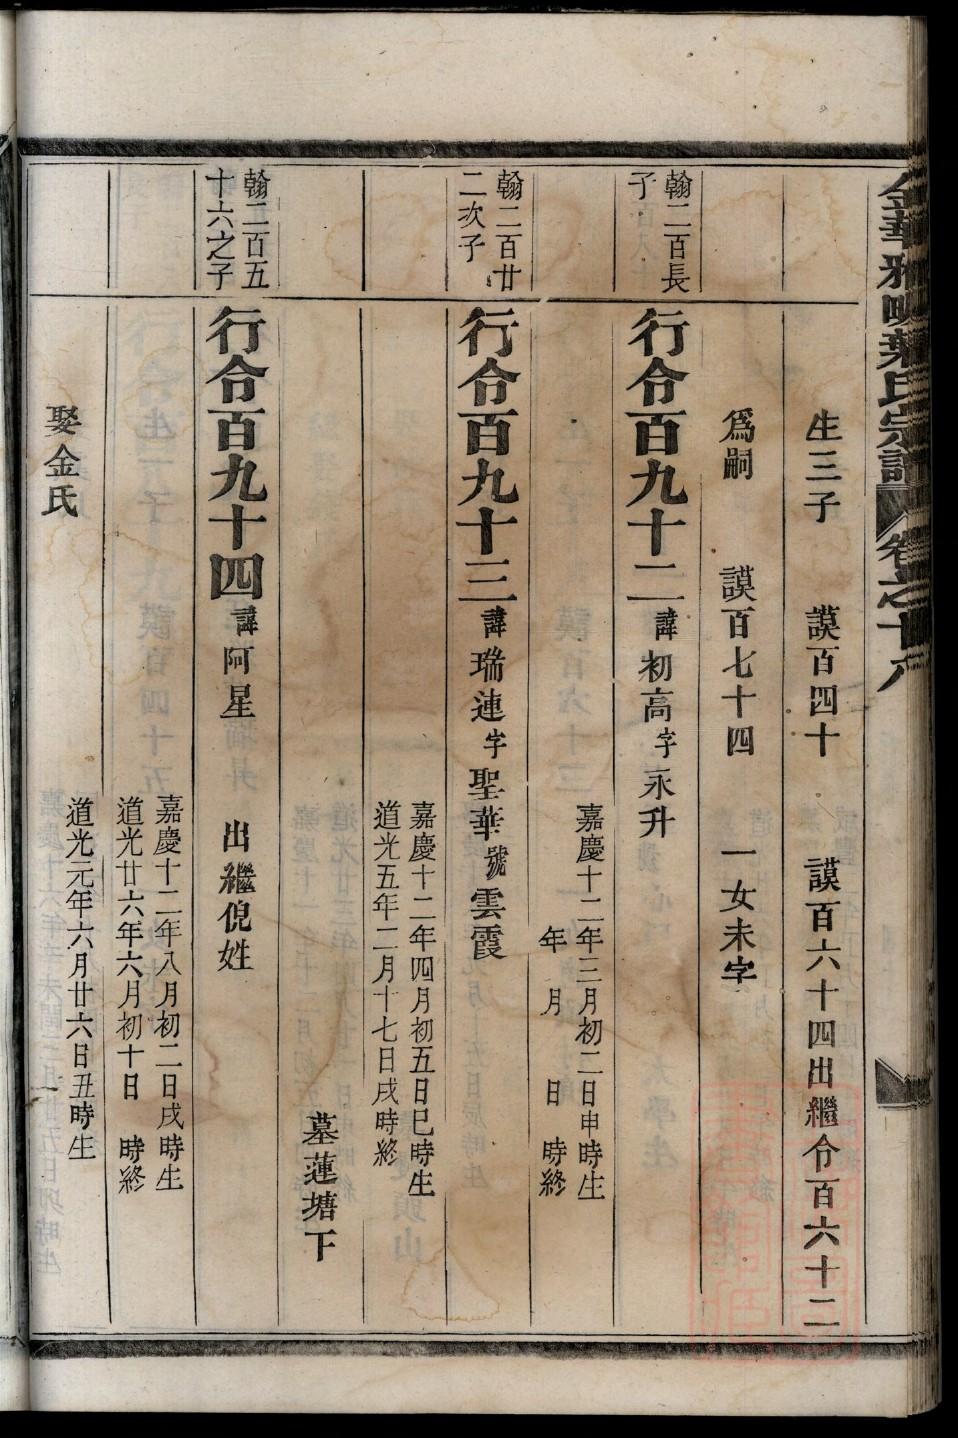 金華雅畈葉氏宗譜 卷之廿八
生三子 謨百四十 謨百六十四出繼令百六十二
爲嗣 謨百七十四 一女未字
翰二百長
子
行令百九十二 諱初高字永升
嘉慶十二年三月初二日申時生
年 月 日 時終
翰二百廿
二次子
行令百九十三 諱瑞連字聖華號雲霞
嘉慶十二年四月初五日巳時生
道光五年二月十七日戌時終
墓蓮塘下
翰二百五
十六之子
行令百九十四 諱阿星 出繼倪姓
嘉慶十二年八月初二日戌時生
道光廿六年六月初十日 時終
娶金氏
道光元年六月廿六日丑時生